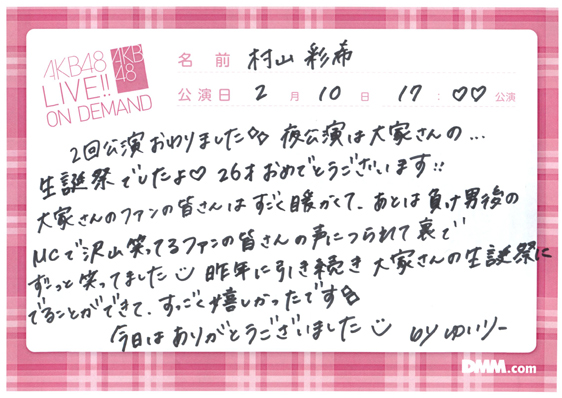 AKB48
LIVE!!
ON DEMAND
AKB
48
名前 村山 彩希
公演日 2月10日 17:♡♡公演
2回公演おわりました 夜公演は大家さんの...
生誕祭でしたよ♡ 26才おめでとうございます!!
大家さんのファンの皆さんはすごく暖かくて、あとは負け男後の
MCで沢山笑ってるファンの皆さんの声につられて裏で
ずっと笑ってました 昨年に引き続き 大家さんの生誕祭に
でることができて、すっごく嬉しかったです
今日はありがとうございました by ゆいりー
DMM.com